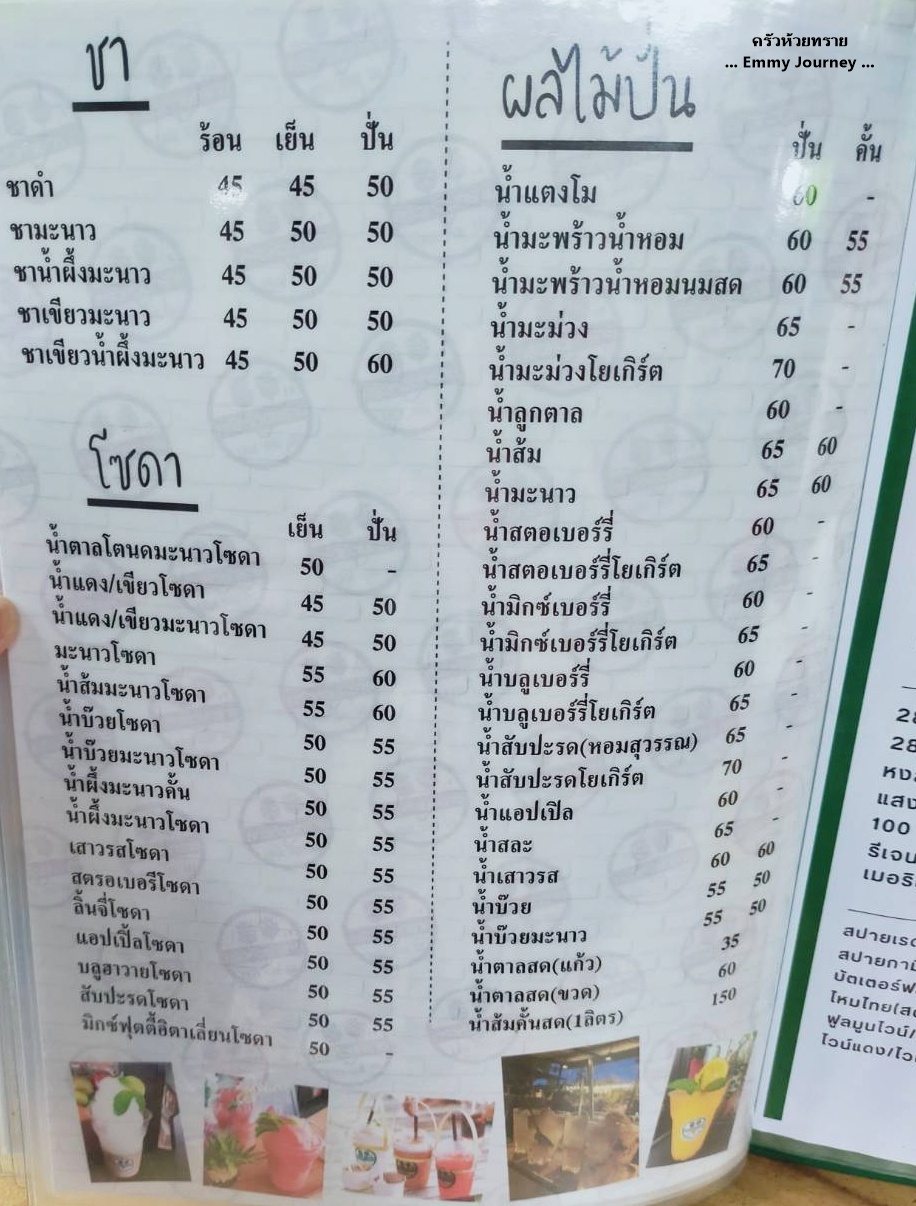 ครัวห้วยทราย
... Emmy Journey ...
ชา
ร้อน เย็น ปั่น
ชาดำ 45 45 50
ชามะนาว 45 50 50
ชาน้ำผึ้งมะนาว 45 50 50
ชาเขียวมะนาว 45 50 50
ชาเขียวน้ำผึ้งมะนาว 45 50 60
โซดา
เย็น ปั่น
น้ำตาลโตนดมะนาวโซดา 50 -
น้ำแดง/เขียวโซดา 45 50
น้ำแดง/เขียวมะนาวโซดา 45 50
มะนาวโซดา 55 60
น้ำส้มมะนาวโซดา 55 60
น้ำบ๊วยโซดา 50 55
น้ำบ๊วยมะนาวโซดา 50 55
น้ำผึ้งมะนาวคั้น 50 55
น้ำผึ้งมะนาวโซดา 50 55
เสาวรสโซดา 50 55
สตรอเบอรีโซดา 50 55
ลิ้นจี่โซดา 50 55
แอปเปิ้ลโซดา 50 55
บลูฮาวายโซดา 50 55
สับปะรดโซดา 50 55
มิกซ์ฟุตตี้อิตาเลี่ยนโซดา 50 -
ผลไม้ปั่น
ปั่น คั้น
น้ำแตงโม 60 -
น้ำมะพร้าวน้ำหอม 60 55
น้ำมะพร้าวน้ำหอมนมสด 60 55
น้ำมะม่วง 65 -
น้ำมะม่วงโยเกิร์ต 70 -
น้ำลูกตาล 60 -
น้ำส้ม 65 60
น้ำมะนาว 65 60
น้ำสตอเบอร์รี่ 60 -
น้ำสตอเบอร์รี่โยเกิร์ต 65 -
น้ำมิกซ์เบอร์รี่ 60 -
น้ำมิกซ์เบอร์รี่โยเกิร์ต 65 -
น้ำบลูเบอร์รี่ 60 -
น้ำบลูเบอร์รี่โยเกิร์ต 65 -
น้ำสับปะรด(หอมสุวรรณ) 65 -
น้ำสับปะรดโยเกิร์ต 70 -
น้ำแอปเปิล 60 -
น้ำสละ 65 -
น้ำเสาวรส 60 60
น้ำบ๊วย 55 50
น้ำบ๊วยมะนาว 55 50
น้ำตาลสด(แก้ว) 35
น้ำตาลสด(ขวด) 60
น้ำส้มคั้นสด(1ลิตร) 150
28
28
หงส
แสง
100
รีเจน
เมอริ
สปายเรด
สปายกามิ
บัตเตอร์ฟ
โหมไทย(ส
ฟูลมูนไวน์/
ไวน์แดง/ไว